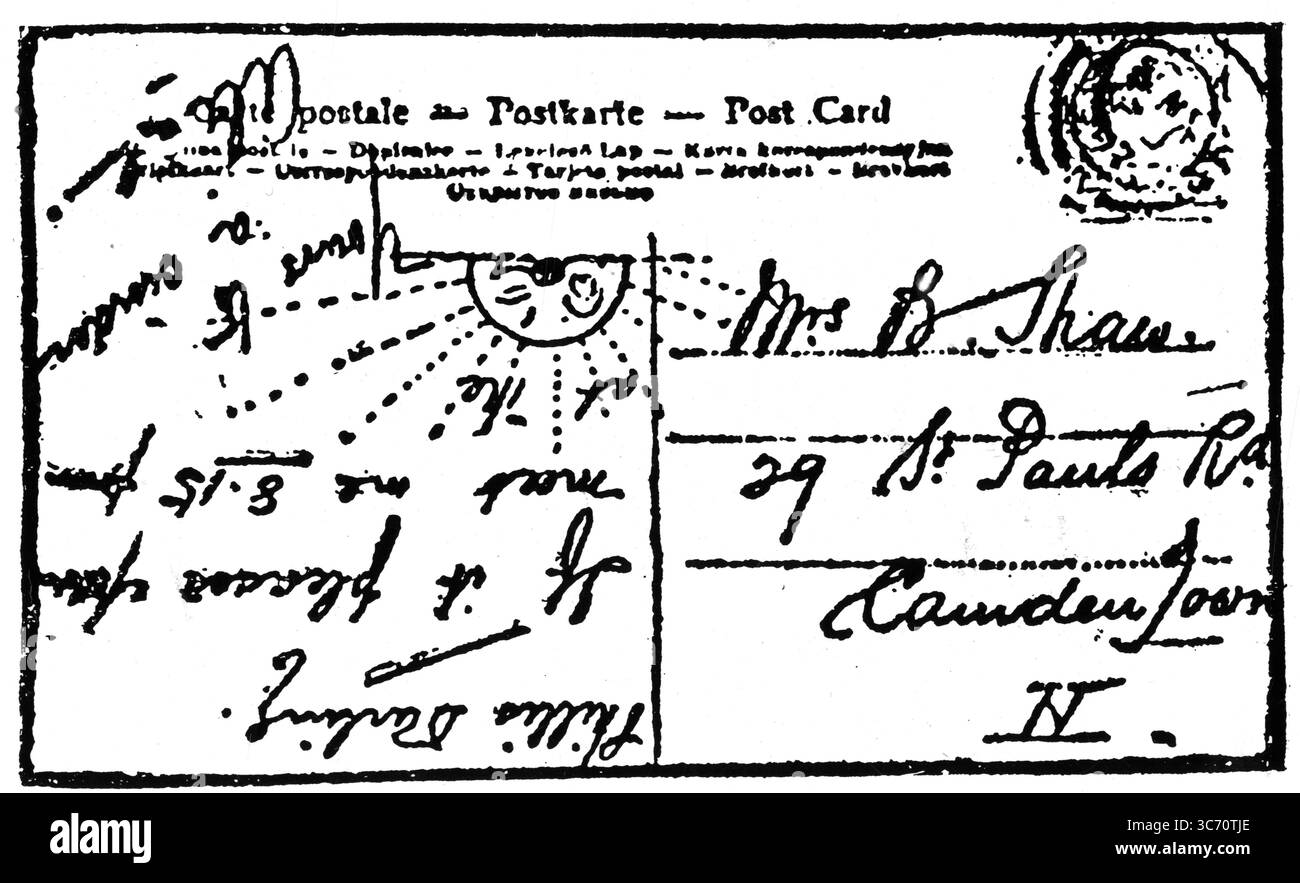 Carte postale — Postkarte — Post Card
Mrs B. Shaw.
29 St. Pauls Rd.
Camden Town
N.
Phillis Darling.
If it pleases you
meet me 8.15 pm
at the
Yours
to a
cinder
alamy
Image ID: 3C70TJE
www.alamy.com